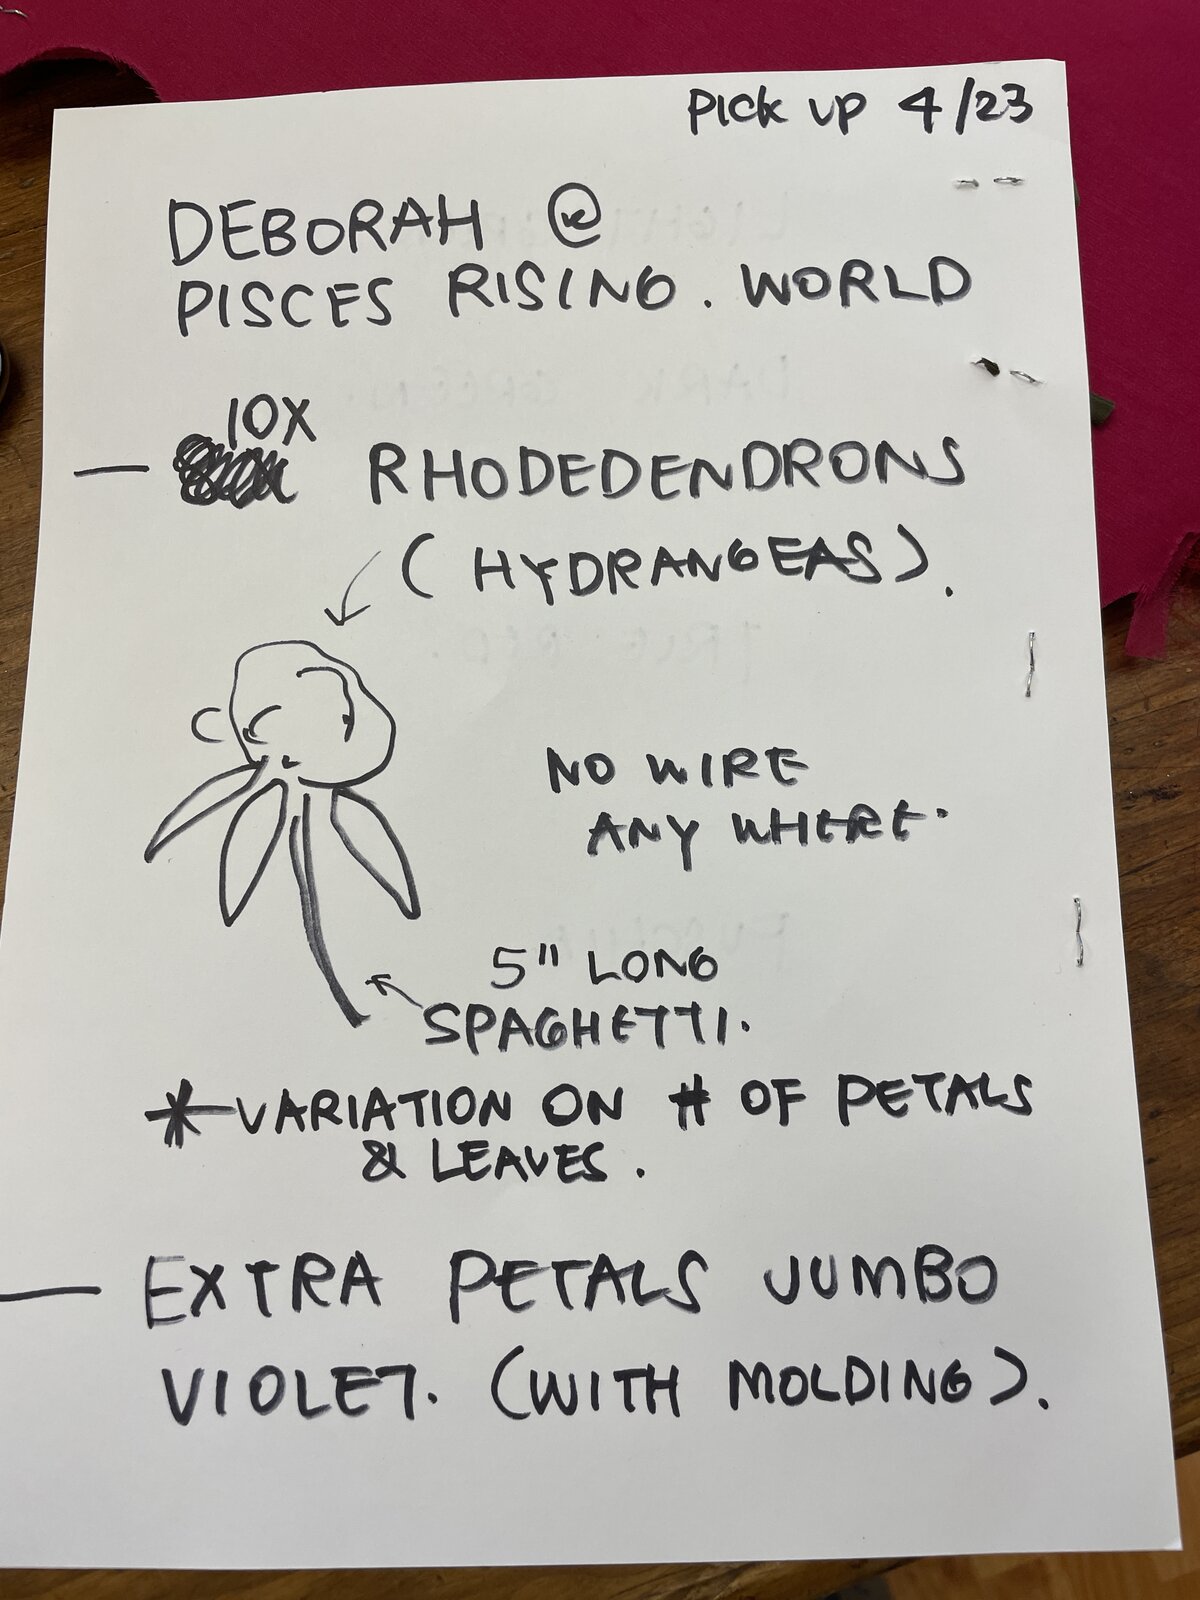 PICK UP 4/23
DEBORAH @
PISCES RISING. WORLD
10X
— RHODEDENDRONS
(HYDRANGEAS).
NO WIRE
ANY WHERE.
5" LONG
SPAGHETTI.
* VARIATION ON # OF PETALS
& LEAVES.
— EXTRA PETALS JUMBO
VIOLET. (WITH MOLDING).